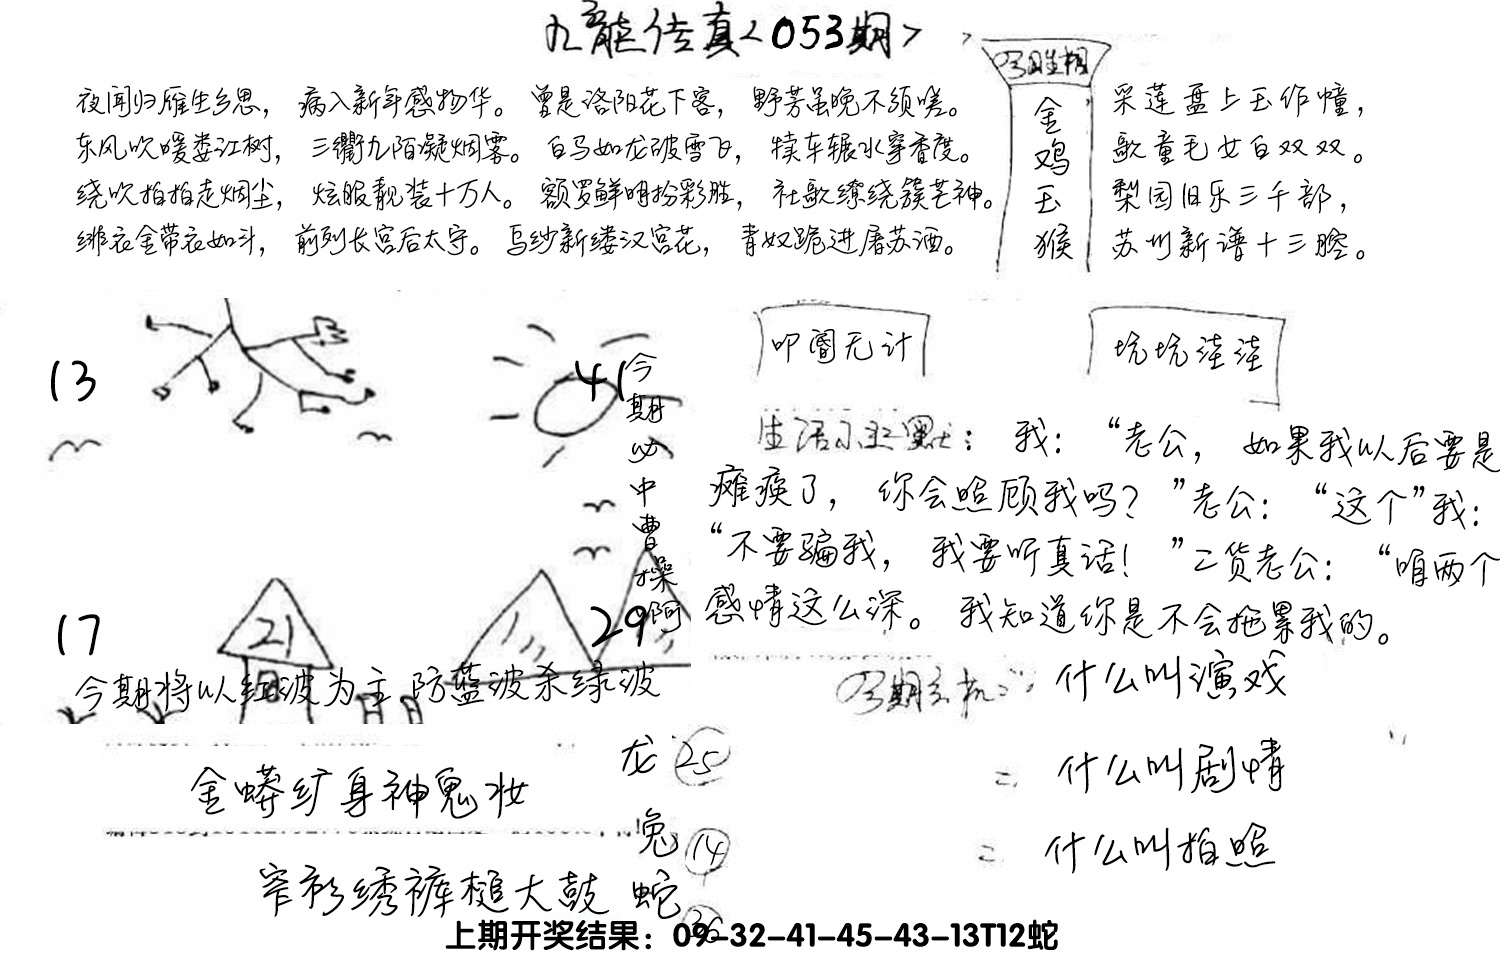 九龙传真<053期>
夜闻归雁生乡思， 病入新年感物华。 曾是洛阳花下客， 野芳虽晚不须嗟。
东风吹暖娄江树， 三衢九陌凝烟雾。 白马如龙破雪飞， 犊车辗水穿香度。
绕吹拍拍走烟尘， 炫服靓装十万人。 额罗鲜明扮彩胜， 社歌缭绕簇芒神。
绯衣金带衣如斗， 前列长宫后太守。 乌纱新缕汉宫花， 青奴跪进屠苏酒。
金
鸡
玉
猴
采莲盘上玉作幢，
歌童毛女白双双。
梨园旧乐三千部，
苏州新谱十三腔。
13
41
17
21
29
今期必中曹操啊
今期将以红波为主 防蓝波杀绿波
叩阍无计
坑坑洼洼
生活小幽默： 我： “老公， 如果我以后要是
瘫痪了， 你会照顾我吗？ ”老公： “这个”我：
“不要骗我， 我要听真话！ ”二货老公： “咱两个
感情这么深。 我知道你是不会拖累我的。
什么叫演戏
= 什么叫剧情
= 什么叫拍照
金蟒纩身神鬼妆
窄衫绣裤槌大鼓
龙 25
兔 14
蛇 36
上期开奖结果：09-32-41-45-43-13T12蛇